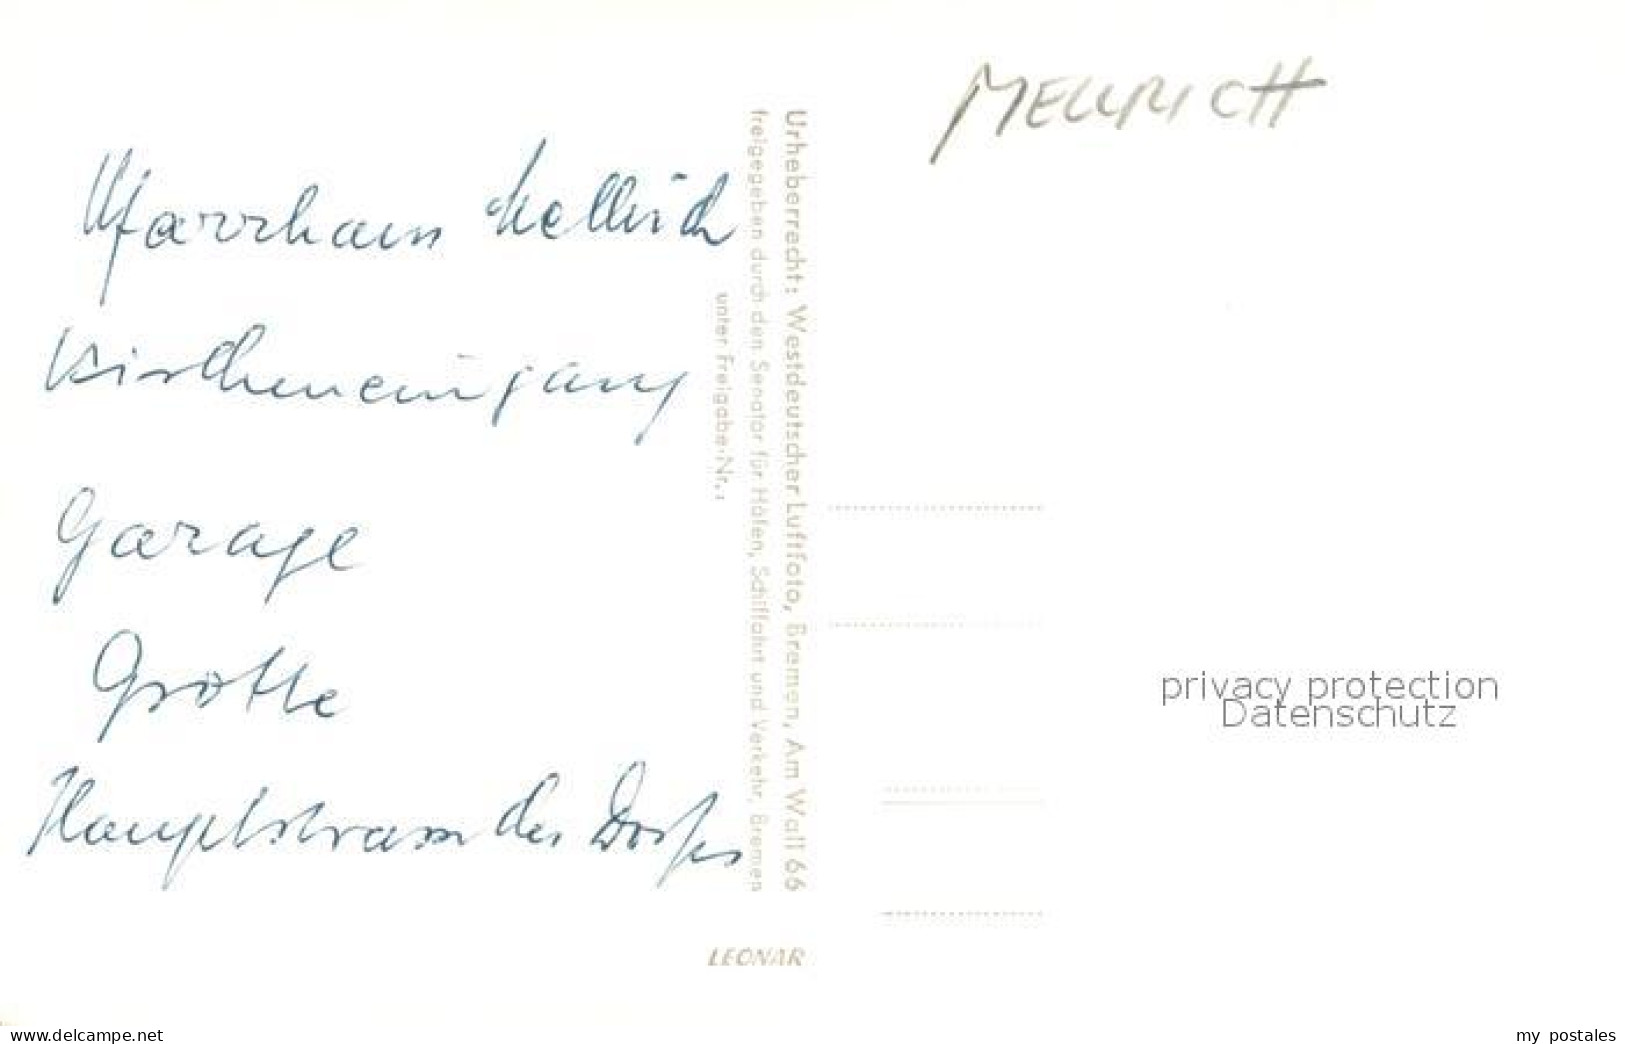 Pfarrhaus Mellrich
Kircheneingang
Garage
Grotte
Hauptstrasse des Dorfes
unter Freigabe-Nr.:
freigegeben durch den Senator für Häfen, Schiffahrt und Verkehr, Bremen
Urheberrecht: Westdeutscher Luftfoto, Bremen, Am Wall 66
LEONAR
MELLRICH
privacy protection
Datenschutz
www.delcampe.net
my_postales